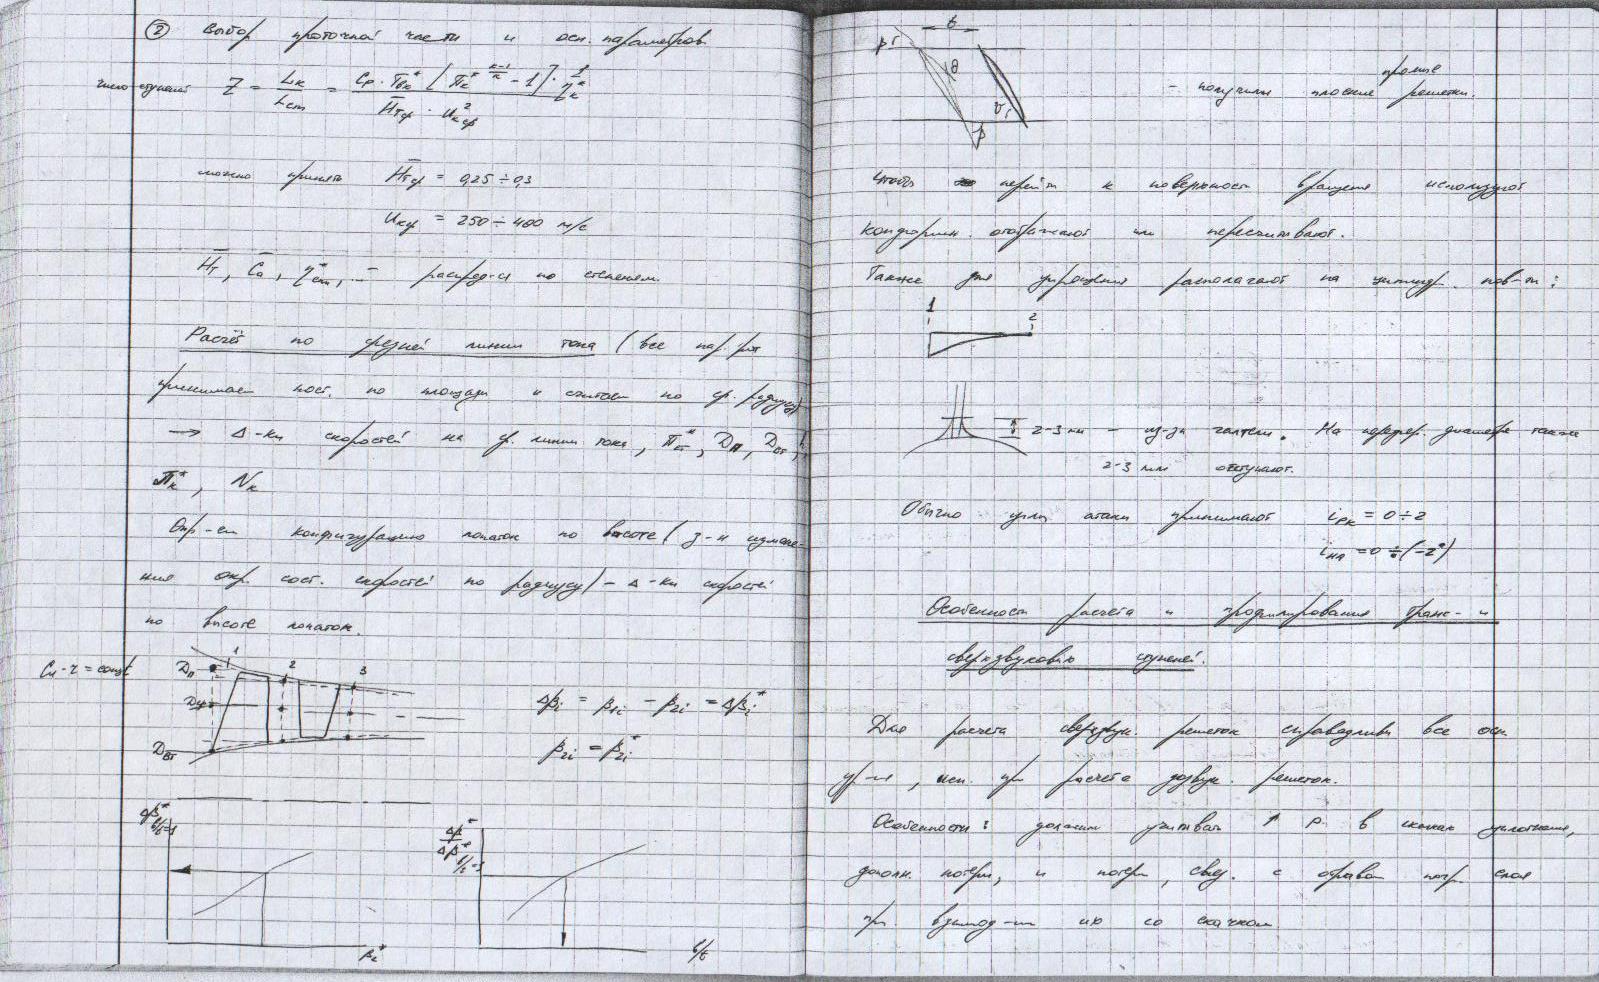 ② Выбор проточной части и осн. параметров
число ступеней Z = Lк / Lст = Cp · Tвк* [Пк* ^((к-1)/к) - 1] · 1/ηк* / (H̄тср · Uкср²)
можно принять H̄тср = 0,25 ÷ 0,3
Uкср = 250 ÷ 400 м/с
H̄т, C̄а, η*ст, ... распред-ся по степеням.
Расчёт по средней линии тока (все пар-ры
принимаем пост. по площади и считаем по ср. радиусу)
→ Δ-ки скоростей на ср. линии тока, П*ст, Dп, Dвт,
Пк*, Nк
Опр-ем конфигурацию лопаток по высоте (з-н измене-
ния окр. сост. скоростей по радиусу) - Δ-ки скоростей
по высоте лопаток.
Cu·r = const
Dп 1 2 3
Dср
Dвт
Δβi = β1i - β2i = Δβi*
β2i = β2i*
Δβ* b/t=1
β2*
Δβ* / Δβ* b/t=1
b/t
t
β1 θ
υ1
β
- получили плоские прямые решетки.
Чтобы перейти к поверхности вращения используют
конформн. отображают или пересчитывают.
Также для упрощения располагают на цилиндр. пов-ти:
1 2
2-3 мм - из-за галтели. На перефер. диаметре также
2-3 мм отступают.
Обычно углы атаки принимают iрк = 0 ÷ 2
iна = 0 ÷ (-2°)
Особенности расчета и профилирования транс- и
сверхзвуковых ступеней.
Для расчета сверхзвук. решеток справедливы все осн.
ур-ия, исп. при расчёте дозвук. решеток.
Особенности: должны учитывать ↑ P. в скачках уплотнения,
дополн. потери, и потери, связ. с отрывом погр. слоя
при взаимод-ии их со скачком